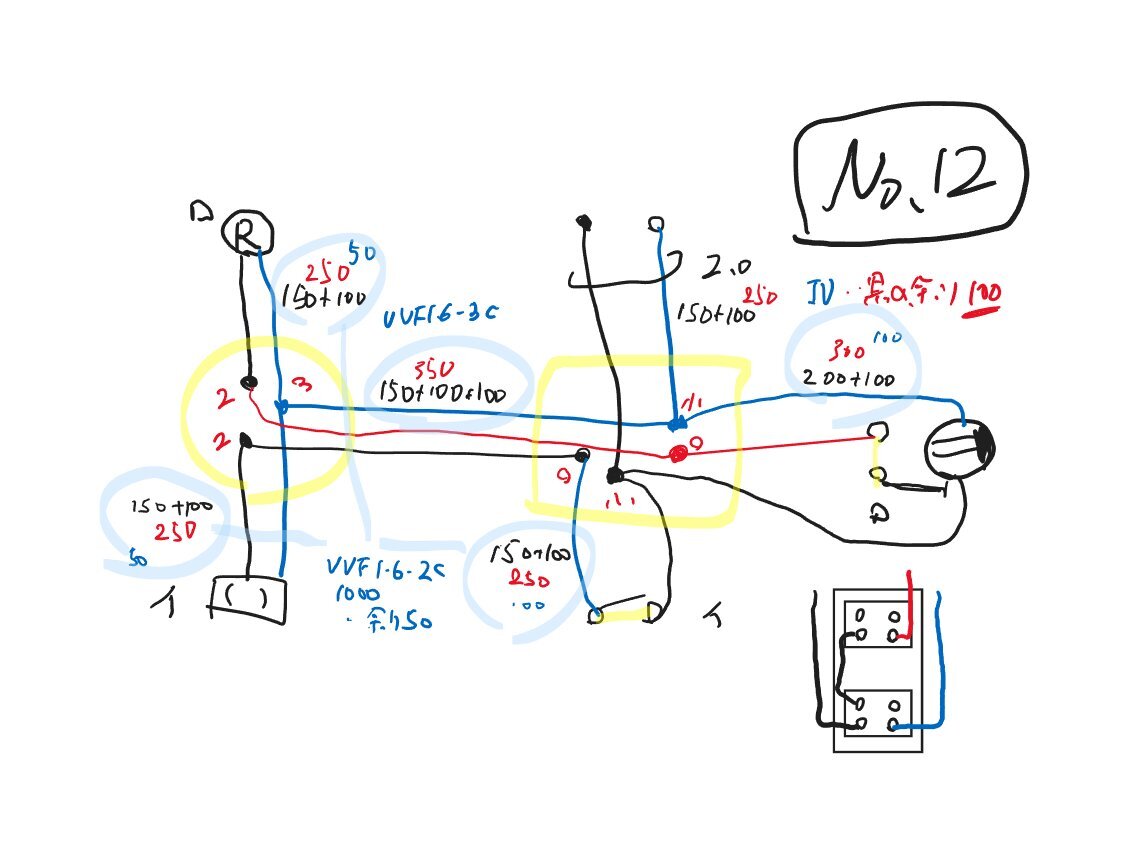 No.12
ロ
R
50
250
150+100
VVF1.6-3C
350
150+100+100
2.0
250
150+100
IV
100
300 100
200+100
2
3
2
小
o
o
小
ロ
150+100
250
50
イ
( )
VVF1.6-2C
1000
余り50
150+100
250
イ